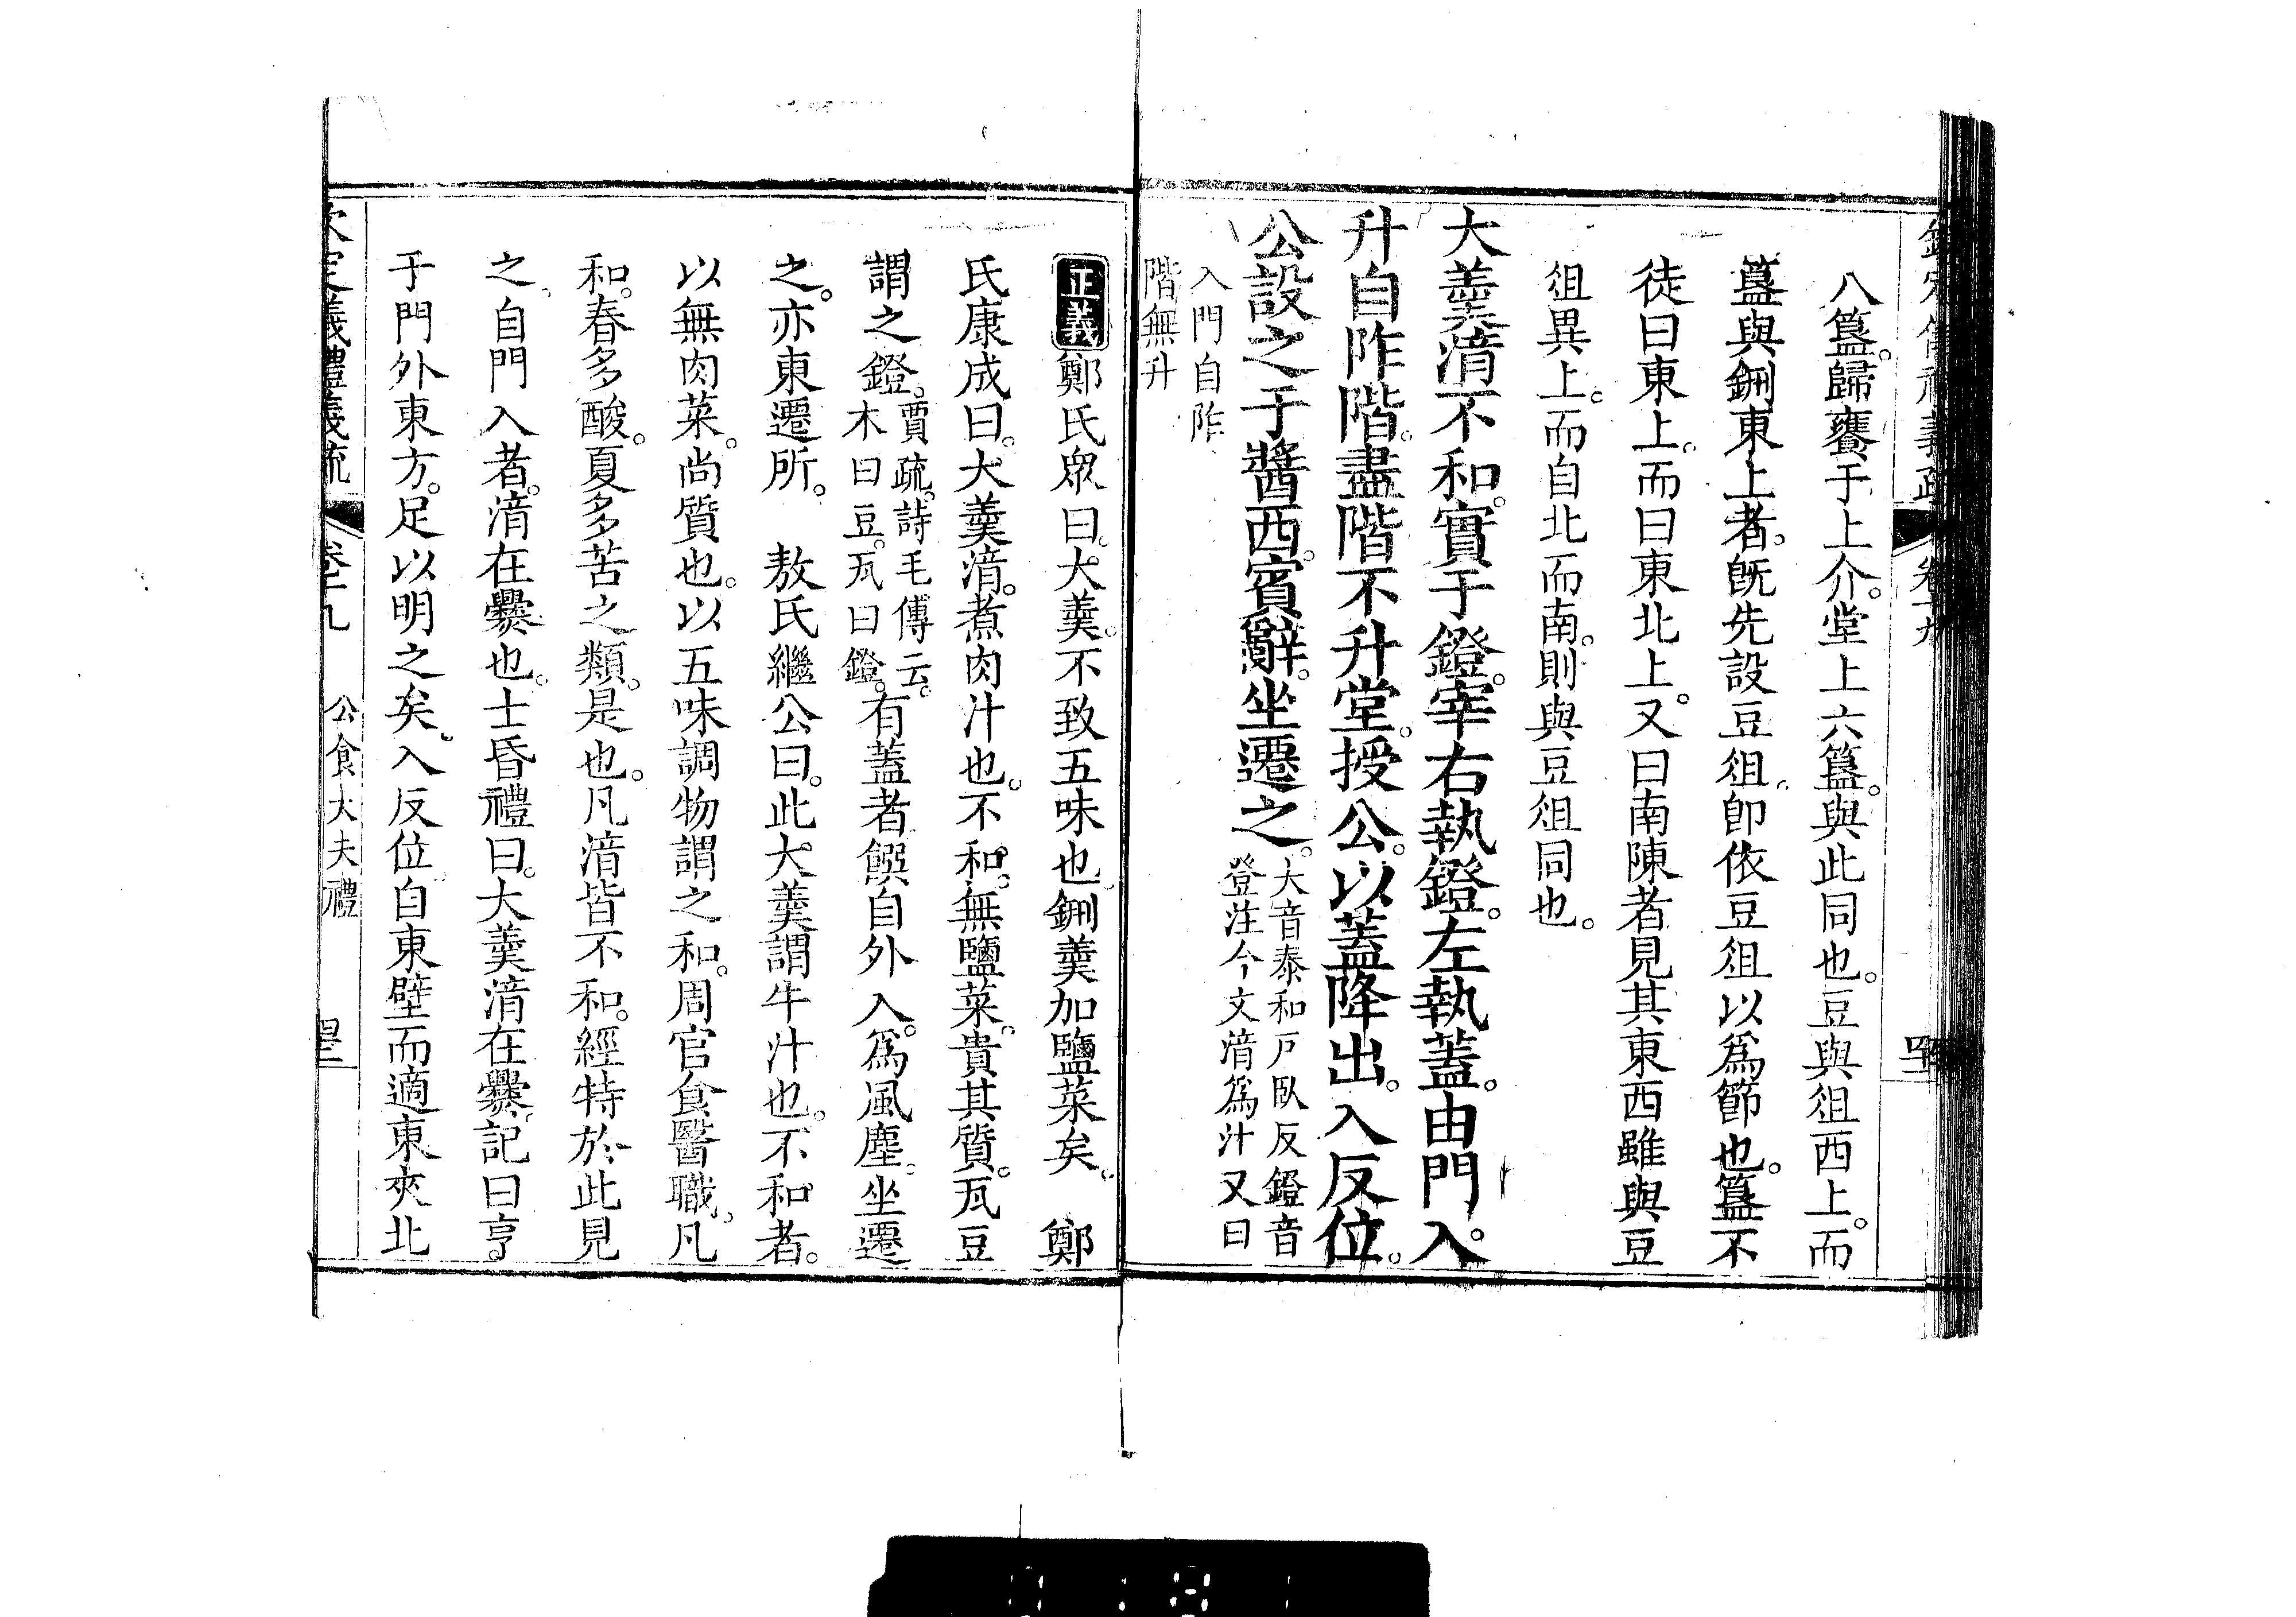 八簋歸饔于上介堂上六簋與此同也豆與俎西上而
簋與鉶東上者旣先設豆俎卽依豆俎以爲節也簋不
徒曰東上而曰東北上又曰南陳者見其東西雖與豆
俎異上而自北而南則與豆俎同也
大羹湆不和實于鐙宰右執鐙左執蓋由門入
升自阼階盡階不升堂授公以蓋降出入反位
公設之于醬西賓辭坐遷之
大音泰和戸臥反鐙音
登注今文湆爲汁又曰
入門自阼
階無升
正義鄭氏眾曰大羹不致五味也鉶羹加鹽菜矣　鄭
氏康成曰大羹湆煮肉汁也不和無鹽菜貴其質瓦豆
謂之鐙
賈疏詩毛傳云
木曰豆瓦曰鐙
有蓋者饌自外入爲風塵坐遷
之亦東遷所　敖氏繼公曰此大羹謂牛汁也不和者
以無肉菜尚質也以五味調物謂之和周官食醫職凡
和春多酸夏多苦之類是也凡湆皆不和經特於此見
之自門入者湆在爨也士昏禮曰大羹湆在爨記曰亨
于門外東方足以明之矣入反位自東壁而適東夾北
義禮義疏
公食大夫禮